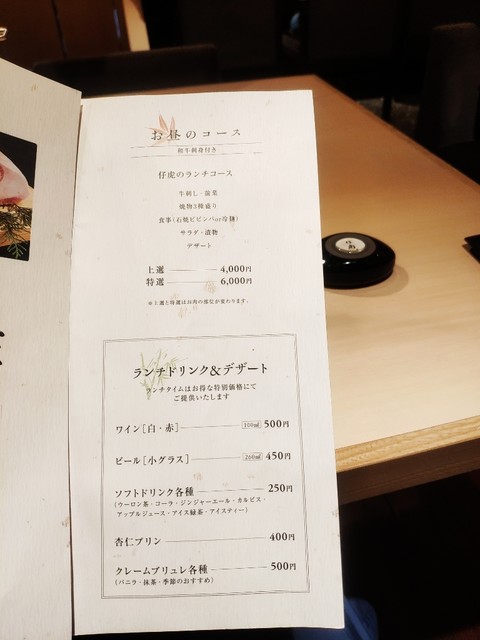 お昼のコース
和牛刺身付き
仔虎のランチコース
牛刺し・前菜
焼物3種盛り
食事(石焼ビビンバor冷麺)
サラダ・漬物
デザート
上選 4,000円
特選 6,000円
※上選と特選はお肉の部位が変わります。
ランチドリンク&デザート
ランチタイムはお得な特別価格にて
ご提供いたします
ワイン[白・赤] 100㎖ 500円
ビール[小グラス] 260㎖ 450円
ソフトドリンク各種 250円
(ウーロン茶・コーラ・ジンジャーエール・カルピス・
アップルジュース・アイス緑茶・アイスティー)
杏仁プリン 400円
クレームブリュレ各種 500円
(バニラ・抹茶・季節のおすすめ)